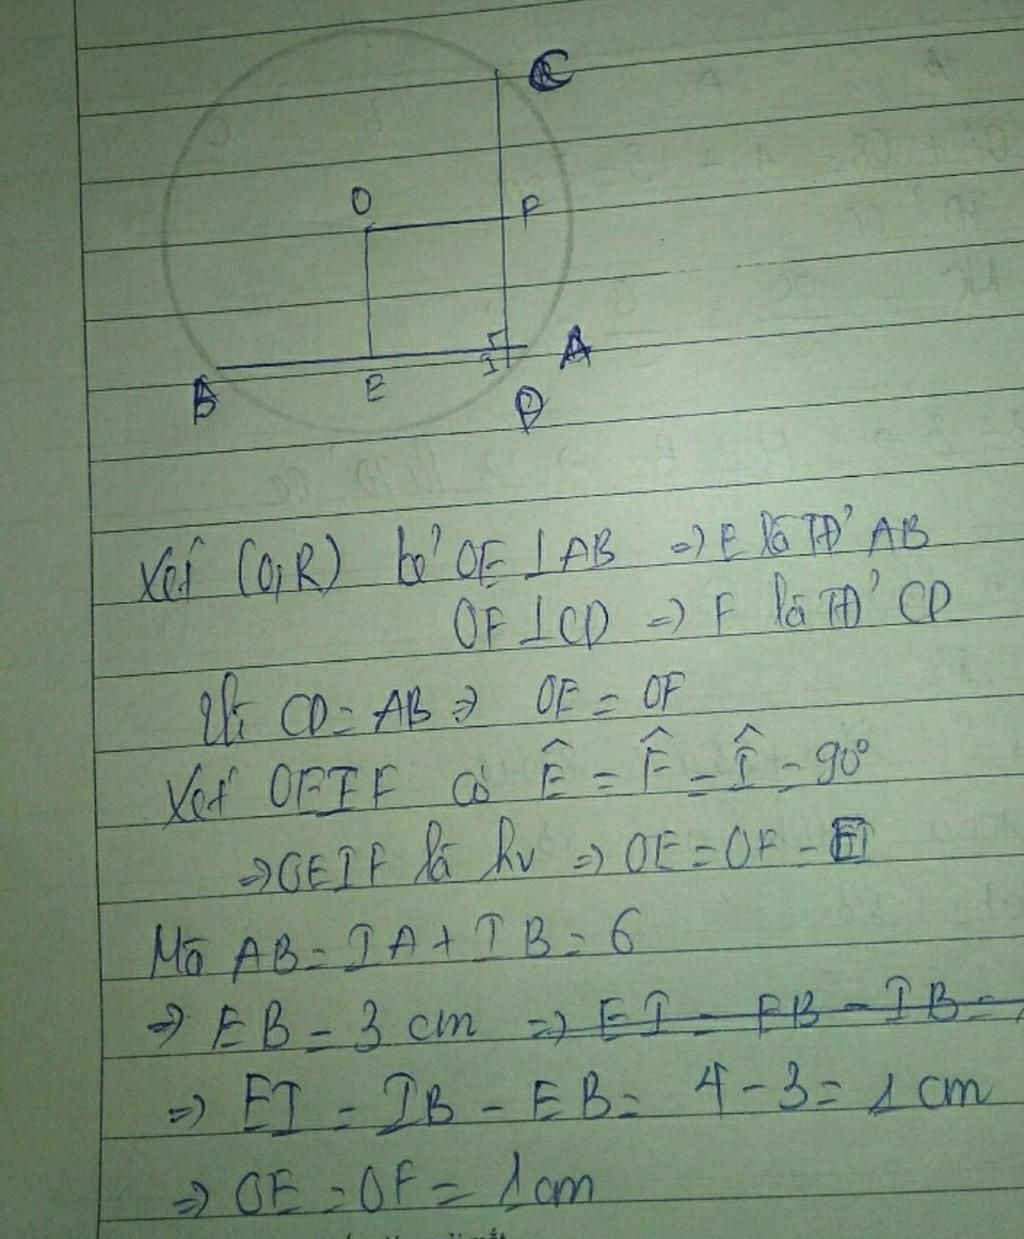 C
O
F
I
A
B
E
D
Xét (O,R) kẻ OE ⊥ AB => E là TĐ' AB
OF ⊥ CD => F là TĐ' CD
Vì CD = AB => OE = OF
Xét OEIF có Ê = F̂ = Î = 90°
=> OEIF là hv => OE = OF = EI
Mà AB = IA + IB = 6
=> EB = 3 cm => EI = EB - IB =
=> EI = IB - EB = 4 - 3 = 1 cm
=> OE = OF = 1cm